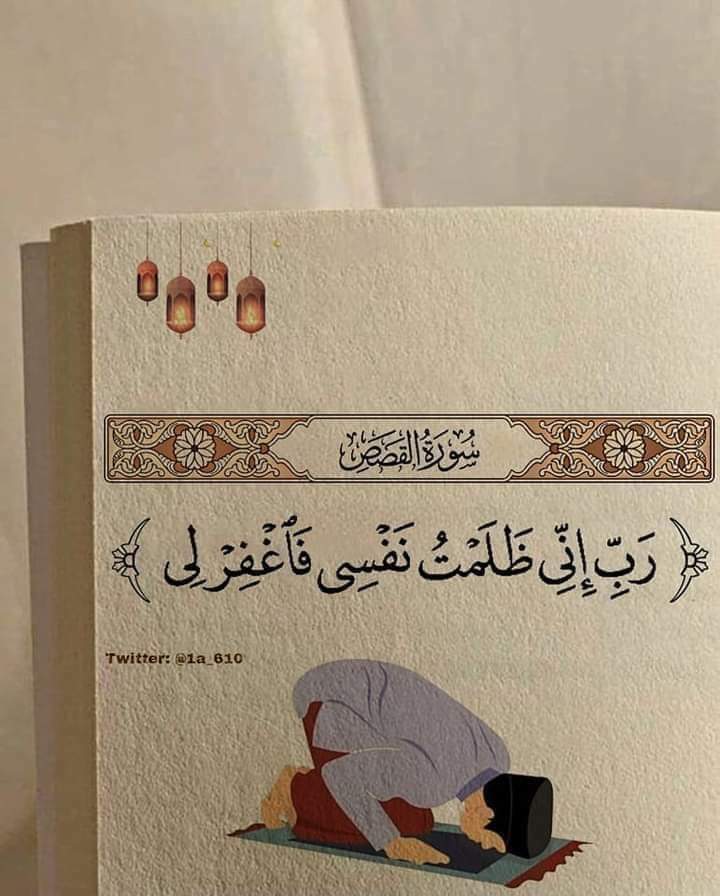 سُورَةُ القَصَصِ
﴿ رَبِّ إِنِّي ظَلَمْتُ نَفْسِي فَٱغْفِرْ لِي ﴾
Twitter: @1a_610